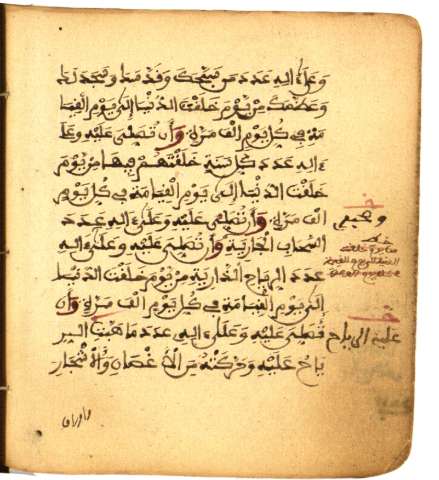 وعلى ءاله عدد من سبحك وقدسك وسجد لك
وعظمك من يوم خلقت الدنيا إلى يوم القيا
مة في كل يوم الف مرة وأن تصلي عليه وعلى
ءاله عدد كل سنة خلقتهم فيها من يوم
خلقت الدنيا إلى يوم القيامة في كل يوم
الف مرة وأن تصلي عليه وعلى ءاله عدد
السحاب الجارية وأن تصلي عليه وعلى ءاله
عدد الرياح الذارية من يوم خلقت الدنيا
إلى يوم القيامة في كل يوم الف مرة وأن
تصلي عليه وعلى ءاله عدد ما هبت الر
ياح عليه وحركته من الأغصان والأشجار
عليه الرياح
واوراق